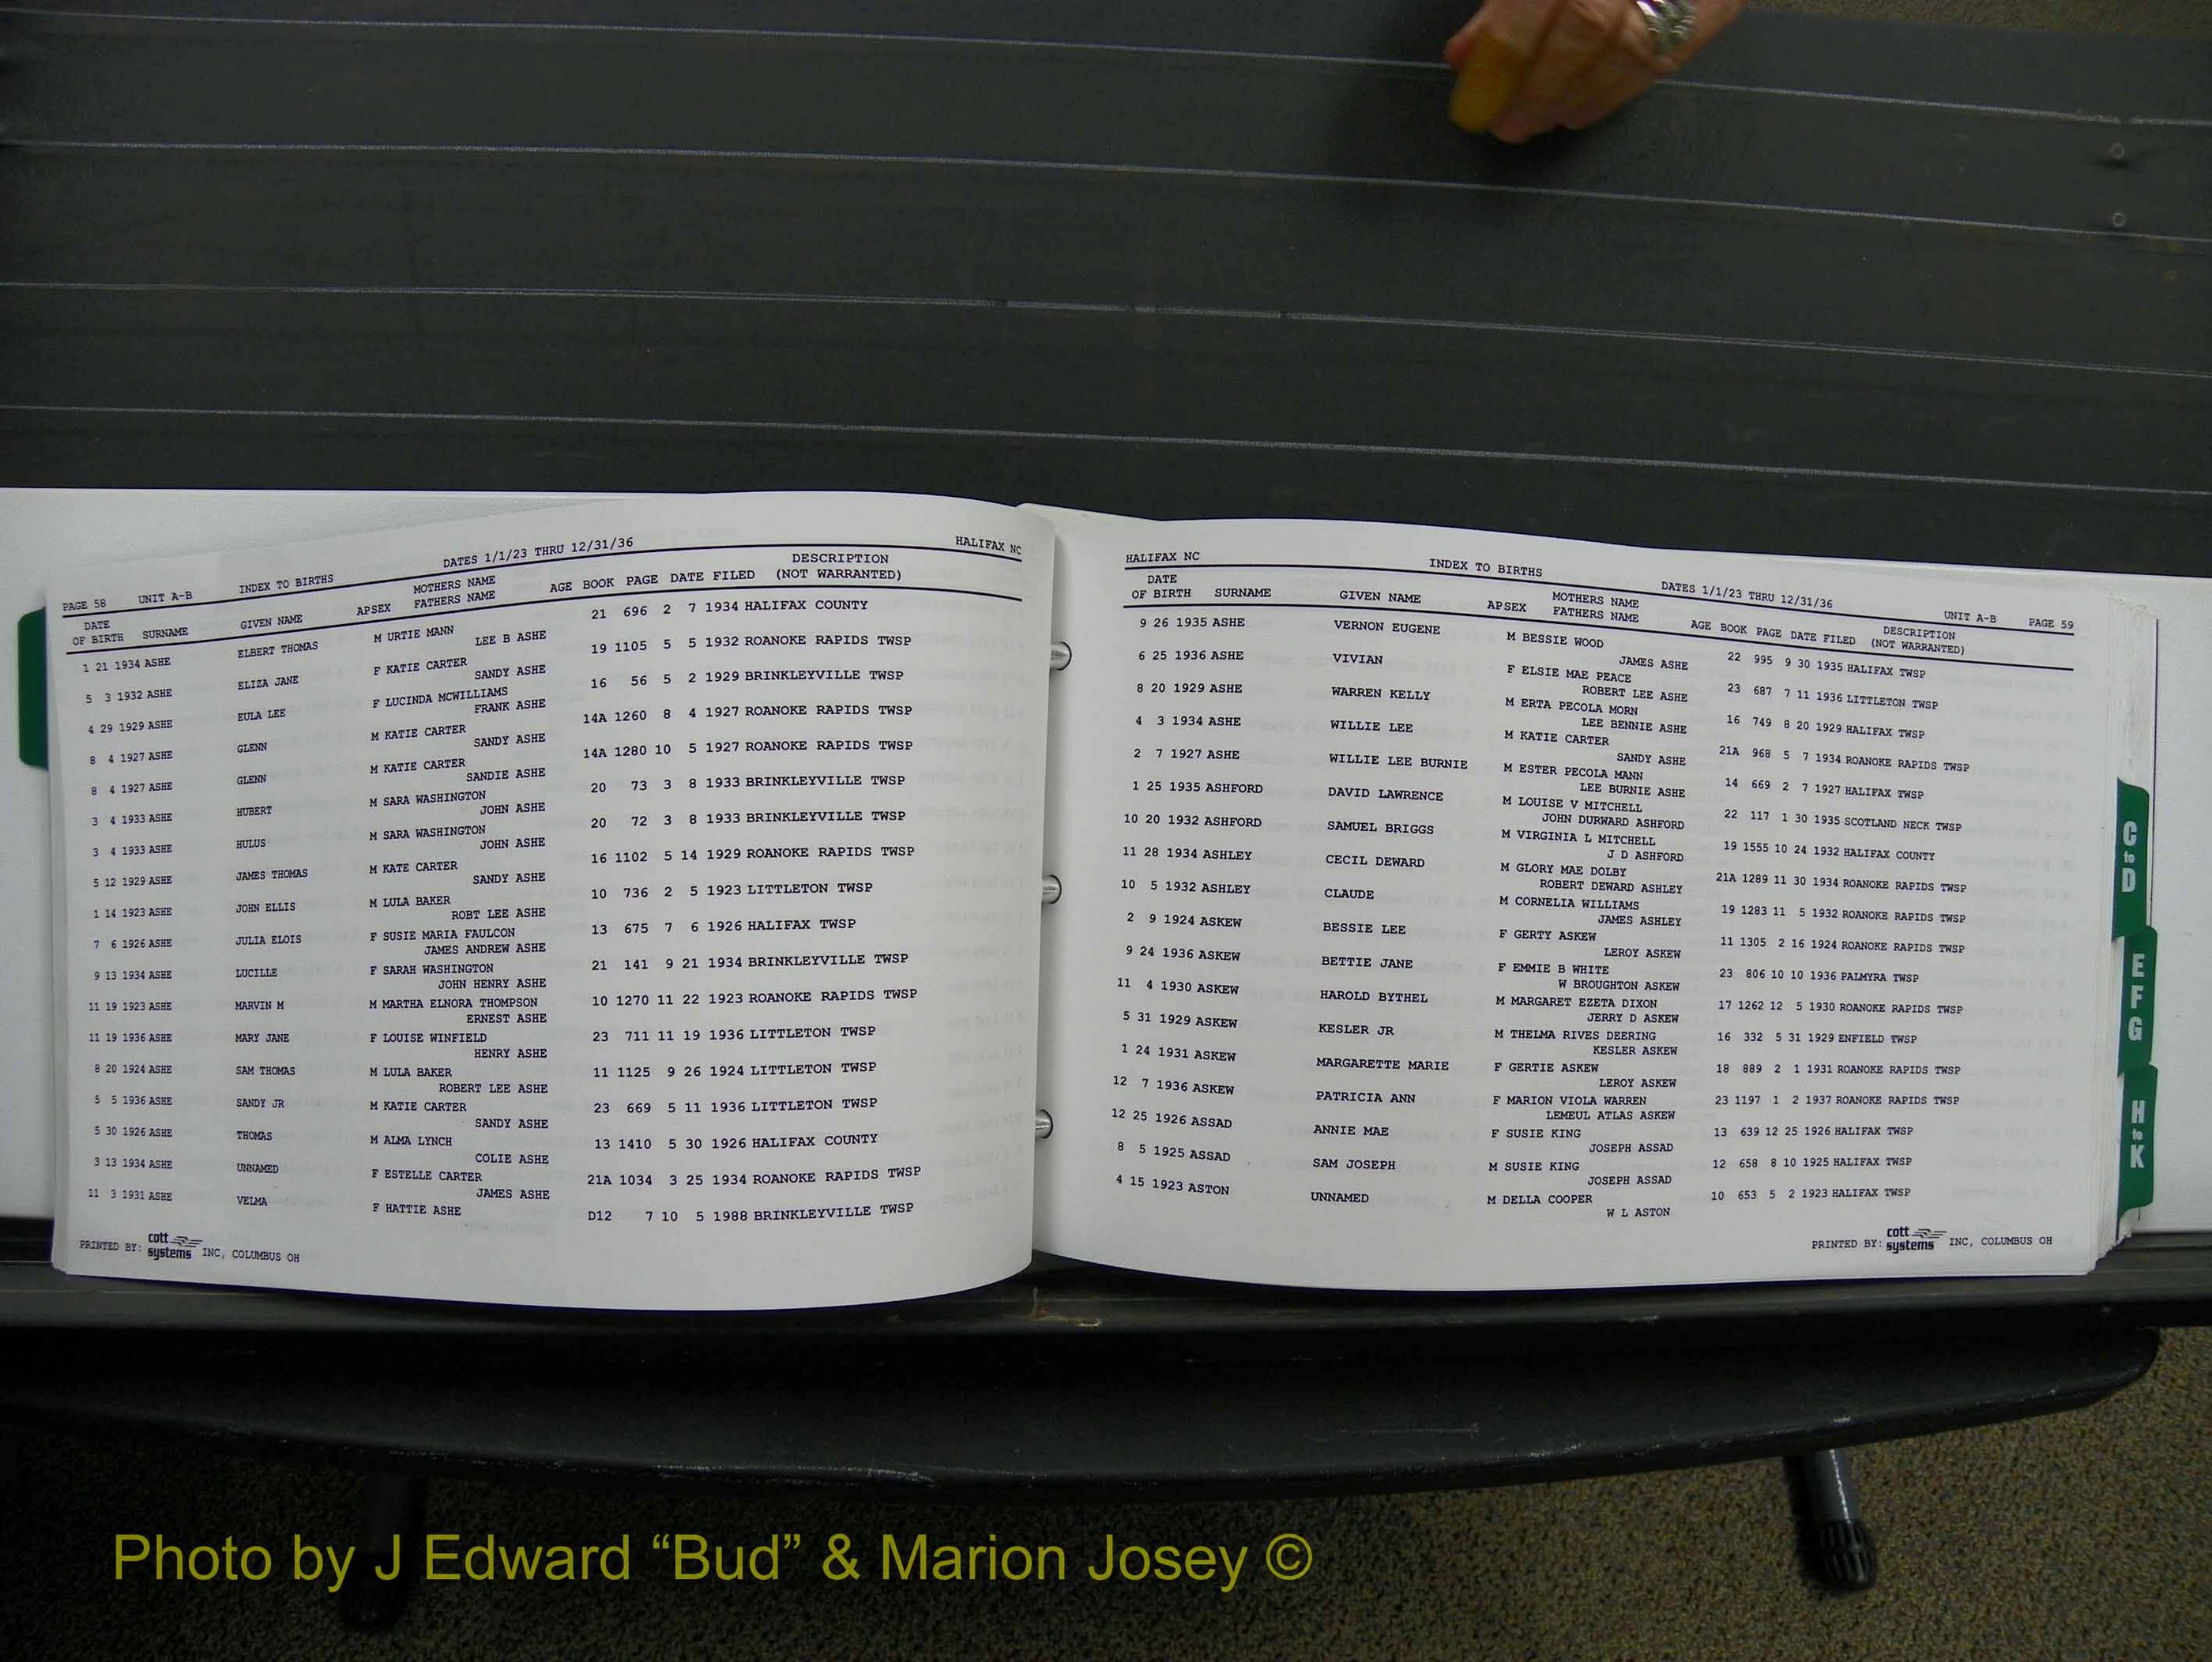 PAGE 58 UNIT A-B INDEX TO BIRTHS DATES 1/1/23 THRU 12/31/36 HALIFAX NC
DATE MOTHERS NAME DESCRIPTION
OF BIRTH SURNAME GIVEN NAME APSEX FATHERS NAME AGE BOOK PAGE DATE FILED (NOT WARRANTED)
1 21 1934 ASHE ELBERT THOMAS M URTIE MANN 21 696 2 7 1934 HALIFAX COUNTY
LEE B ASHE
5 3 1932 ASHE ELIZA JANE F KATIE CARTER 19 1105 5 5 1932 ROANOKE RAPIDS TWSP
SANDY ASHE
4 29 1929 ASHE EULA LEE F LUCINDA MCWILLIAMS 16 56 5 2 1929 BRINKLEYVILLE TWSP
FRANK ASHE
8 4 1927 ASHE GLENN M KATIE CARTER 14A 1260 8 4 1927 ROANOKE RAPIDS TWSP
SANDY ASHE
8 4 1927 ASHE GLENN M KATIE CARTER 14A 1280 10 5 1927 ROANOKE RAPIDS TWSP
SANDIE ASHE
3 4 1933 ASHE HUBERT M SARA WASHINGTON 20 73 3 8 1933 BRINKLEYVILLE TWSP
JOHN ASHE
3 4 1933 ASHE HULUS M SARA WASHINGTON 20 72 3 8 1933 BRINKLEYVILLE TWSP
JOHN ASHE
5 12 1929 ASHE JAMES THOMAS M KATE CARTER 16 1102 5 14 1929 ROANOKE RAPIDS TWSP
SANDY ASHE
1 14 1923 ASHE JOHN ELLIS M LULA BAKER 10 736 2 5 1923 LITTLETON TWSP
ROBT LEE ASHE
7 6 1926 ASHE JULIA ELOIS F SUSIE MARIA FAULCON 13 675 7 6 1926 HALIFAX TWSP
JAMES ANDREW ASHE
9 13 1934 ASHE LUCILLE F SARAH WASHINGTON 21 141 9 21 1934 BRINKLEYVILLE TWSP
JOHN HENRY ASHE
11 19 1923 ASHE MARVIN M M MARTHA ELNORA THOMPSON 10 1270 11 22 1923 ROANOKE RAPIDS TWSP
ERNEST ASHE
11 19 1936 ASHE MARY JANE F LOUISE WINFIELD 23 711 11 19 1936 LITTLETON TWSP
HENRY ASHE
8 20 1924 ASHE SAM THOMAS M LULA BAKER 11 1125 9 26 1924 LITTLETON TWSP
ROBERT LEE ASHE
5 5 1936 ASHE SANDY JR M KATIE CARTER 23 669 5 11 1936 LITTLETON TWSP
SANDY ASHE
5 30 1926 ASHE THOMAS M ALMA LYNCH 13 1410 5 30 1926 HALIFAX COUNTY
COLIE ASHE
3 13 1934 ASHE UNNAMED F ESTELLE CARTER 21A 1034 3 25 1934 ROANOKE RAPIDS TWSP
JAMES ASHE
11 3 1931 ASHE VELMA F HATTIE ASHE D12 7 10 5 1988 BRINKLEYVILLE TWSP
PRINTED BY: cott systems INC, COLUMBUS OH
HALIFAX NC INDEX TO BIRTHS DATES 1/1/23 THRU 12/31/36 UNIT A-B PAGE 59
DATE MOTHERS NAME DESCRIPTION
OF BIRTH SURNAME GIVEN NAME APSEX FATHERS NAME AGE BOOK PAGE DATE FILED (NOT WARRANTED)
9 26 1935 ASHE VERNON EUGENE M BESSIE WOOD 22 995 9 30 1935 HALIFAX TWSP
JAMES ASHE
6 25 1936 ASHE VIVIAN F ELSIE MAE PEACE 23 687 7 11 1936 LITTLETON TWSP
ROBERT LEE ASHE
8 20 1929 ASHE WARREN KELLY M ERTA PECOLA MORN 16 749 8 20 1929 HALIFAX TWSP
LEE BENNIE ASHE
4 3 1934 ASHE WILLIE LEE M KATIE CARTER 21A 968 5 7 1934 ROANOKE RAPIDS TWSP
SANDY ASHE
2 7 1927 ASHE WILLIE LEE BURNIE M ESTER PECOLA MANN 14 669 2 7 1927 HALIFAX TWSP
LEE BURNIE ASHE
1 25 1935 ASHFORD DAVID LAWRENCE M LOUISE V MITCHELL 22 117 1 30 1935 SCOTLAND NECK TWSP
JOHN DURWARD ASHFORD
10 20 1932 ASHFORD SAMUEL BRIGGS M VIRGINIA L MITCHELL 19 1555 10 24 1932 HALIFAX COUNTY
J D ASHFORD
11 28 1934 ASHLEY CECIL DEWARD M GLORY MAE DOLBY 21A 1289 11 30 1934 ROANOKE RAPIDS TWSP
ROBERT DEWARD ASHLEY
10 5 1932 ASHLEY CLAUDE M CORNELIA WILLIAMS 19 1283 11 5 1932 ROANOKE RAPIDS TWSP
JAMES ASHLEY
2 9 1924 ASKEW BESSIE LEE F GERTY ASKEW 11 1305 2 16 1924 ROANOKE RAPIDS TWSP
LEROY ASKEW
9 24 1936 ASKEW BETTIE JANE F EMMIE B WHITE 23 806 10 10 1936 PALMYRA TWSP
W BROUGHTON ASKEW
11 4 1930 ASKEW HAROLD BYTHEL M MARGARET EZETA DIXON 17 1262 12 5 1930 ROANOKE RAPIDS TWSP
JERRY D ASKEW
5 31 1929 ASKEW KESLER JR M THELMA RIVES DEERING 16 332 5 31 1929 ENFIELD TWSP
KESLER ASKEW
1 24 1931 ASKEW MARGARETTE MARIE F GERTIE ASKEW 18 889 2 1 1931 ROANOKE RAPIDS TWSP
LEROY ASKEW
12 7 1936 ASKEW PATRICIA ANN F MARION VIOLA WARREN 23 1197 1 2 1937 ROANOKE RAPIDS TWSP
LEMEUL ATLAS ASKEW
12 25 1926 ASSAD ANNIE MAE F SUSIE KING 13 639 12 25 1926 HALIFAX TWSP
JOSEPH ASSAD
8 5 1925 ASSAD SAM JOSEPH M SUSIE KING 12 658 8 10 1925 HALIFAX TWSP
JOSEPH ASSAD
4 15 1923 ASTON UNNAMED M DELLA COOPER 10 653 5 2 1923 HALIFAX TWSP
W L ASTON
PRINTED BY: cott systems INC, COLUMBUS OH
C to D
E F G
H to K
Photo by J Edward “Bud” & Marion Josey ©